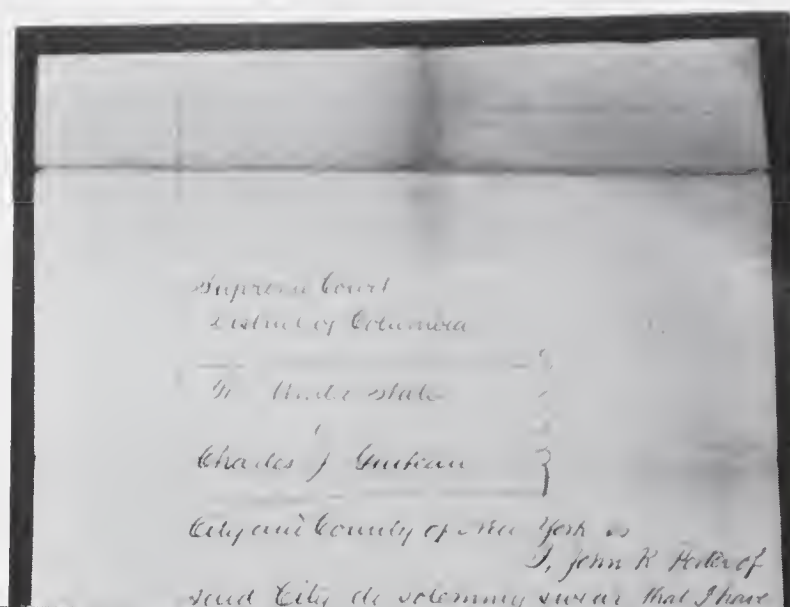 Supreme Court
District of Columbia
The United States
Charles J Guiteau
City and County of New York ss
I, John K Porter of
said City do solemnly swear that I have